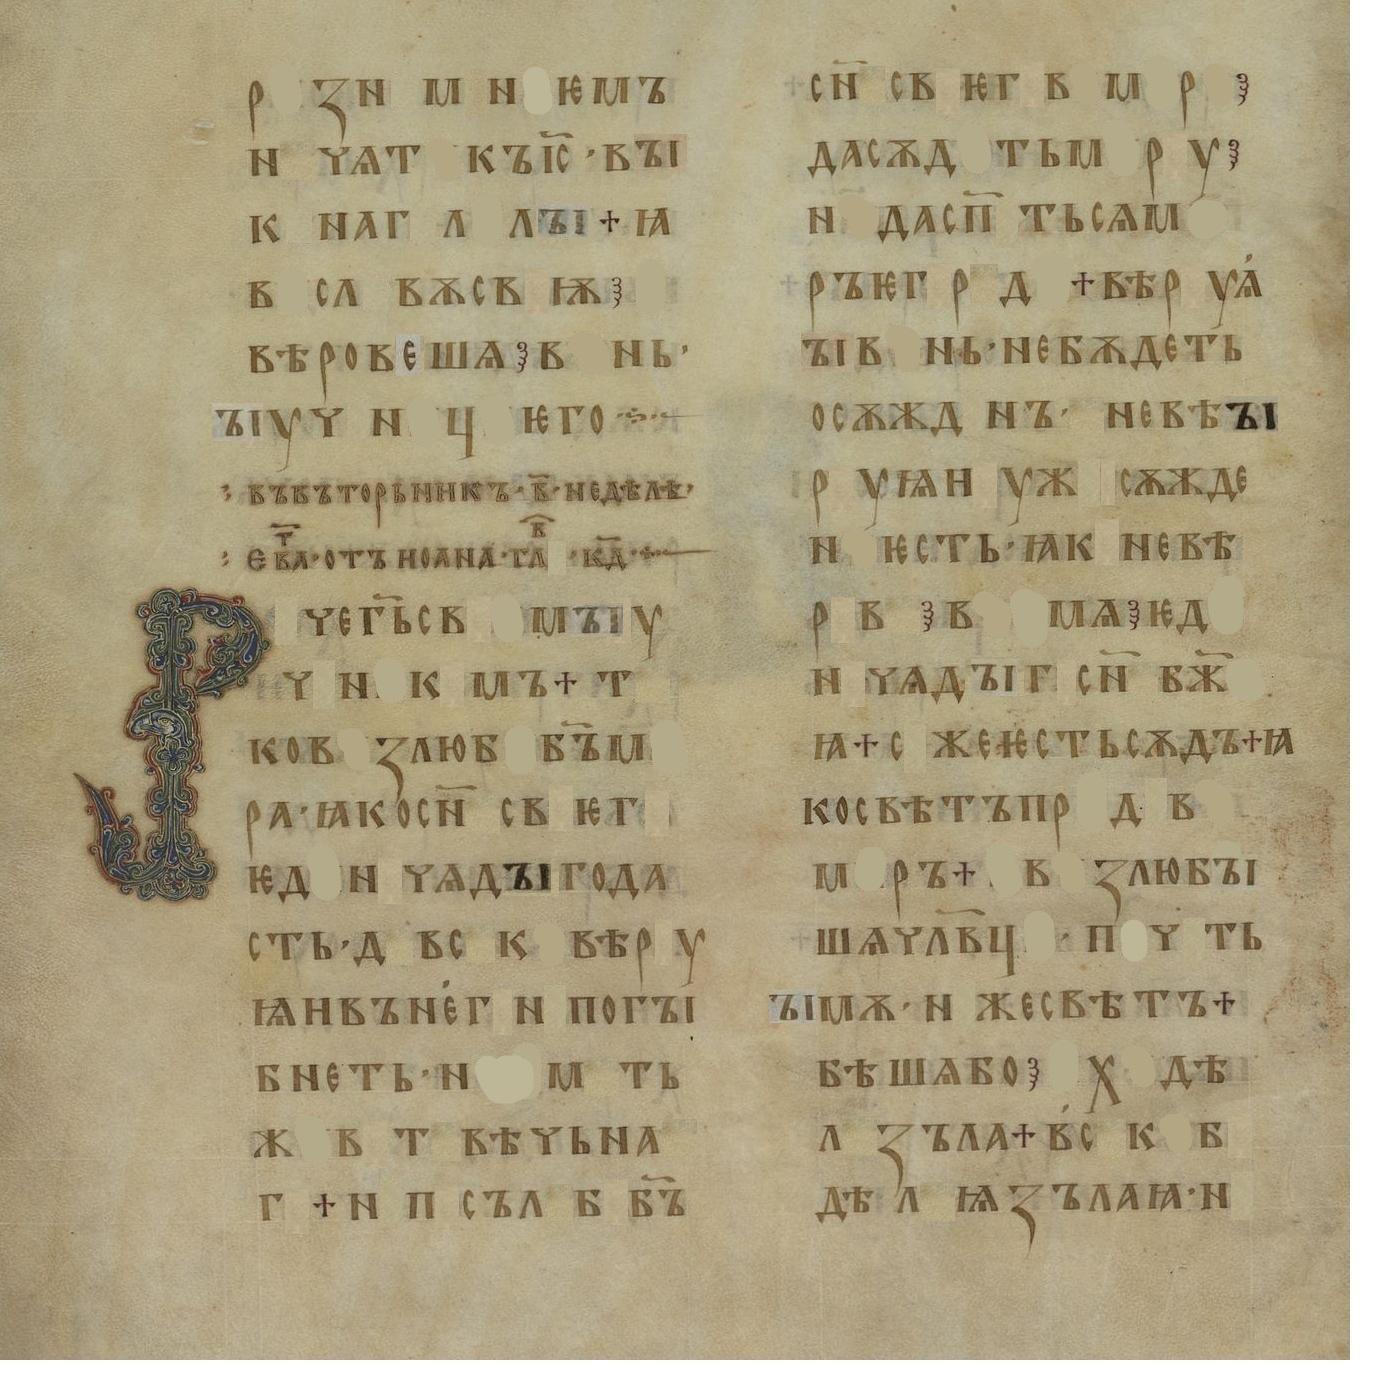 р зн м н ѥмъ
н чѧт къі҃с · въі
к наг л лъі + ꙗ
в сл вѫсв ѭ ꙁ
вѣровешѧ ꙁ в нь ·
ъіуч н ц ѥго
въвъторьникъ · в҃ · недѣлѣ ·
еⷡ҃а · отъ иоана · гл҃а · кд҃ ·
Р чег҃ьсв мъіу
ч н к мъ + т
ков ꙁлюб б҃ъм
ра · ꙗкосн҃ св ѥг
ѥд н чѧдъігода
сть · д вс к вѣр у
ѩнвънег н погъі
бнеть · н м ть
ж в т вѣчьна
г + н п съл б б҃ъ
сн҃ св ѥг в м р ꙁ
дасѫд тьм р у ꙁ
н дасп҃ тьсѧм
ръѥг р д + вѣр уѧ
ъів нь · небѫдеть
осѫжд нъ · невѣъі
р уѩн уж сѫжде
н ѥсть · ꙗк невѣ
р в ꙁ в мѧ ꙁ ѥд
н чѧдъіг сн҃ бж҃
ꙗ + с жеѥстьсѫдъ + ꙗ
косвѣтъпр д в
м ръ + в ꙁлюбъі
шѧчл҃вц · п ч ть
ъімѫ · н жесвѣтъ +
бѣшѧбо ꙁ х дѣ
л ꙁъла + вс к б
дѣ л ѩꙁълаꙗ · н